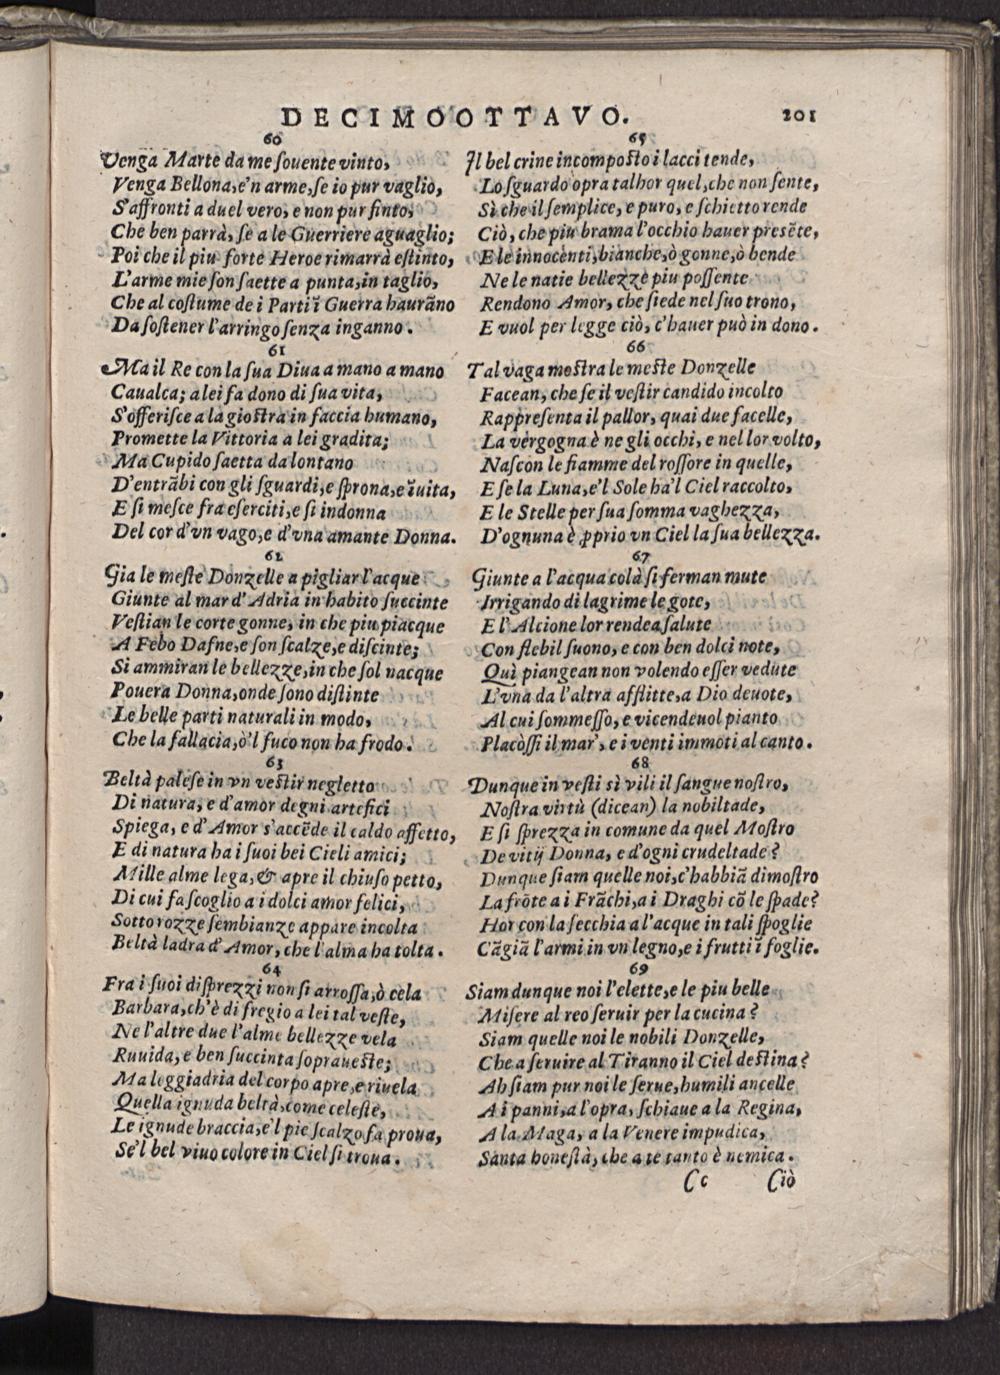 DECIMOOTTAVO. 201
60
Venga Marte da me ſouente vinto,
Venga Bellona, e'n arme, ſe io pur vaglio,
S'affronti a duel vero, e non pur finto,
Che ben parrà, ſe a le Guerriere aguaglio;
Poi che il piu forte Heroe rimarrà eſtinto,
L'arme mie ſon ſaette a punta, in taglio,
Che al coſtume de i Parti ĩ Guerra haurãno
Da ſoſtener l'arringo ſenza inganno.
61
Ma il Re con la ſua Diua a mano a mano
Caualca; a lei fa dono di ſua vita,
S'offeriſce a la gioſtra in faccia humano,
Promette la Vittoria a lei gradita;
Ma Cupido ſaetta da lontano
D'entrãbi con gli ſguardi, e ſprona, e ĩuita,
E ſi meſce fra eſerciti, e ſi indonna
Del cor d'vn vago, e d'vna amante Donna.
62
Gia le meſte Donzelle a pigliar l'acque
Giunte al mar d'Adria in habito ſuccinte
Veſtian le corte gonne, in che piu piacque
A Febo Dafne, e ſon ſcalze, e diſcinte;
Si ammiran le bellezze, in che ſol nacque
Pouera Donna, onde ſono diſtinte
Le belle parti naturali in modo,
Che la fallacia, ò'l fuco non ha frodo.
63
Beltà paleſe in vn veſtir negletto
Di natura, e d'amor degni artefici
Spiega, e d'Amor s'accẽde il caldo affetto,
E di natura ha i ſuoi bei Cieli amici;
Mille alme lega, & apre il chiuſo petto,
Di cui fa ſcoglio a i dolci amor felici,
Sotto rozze ſembianze appare incolta
Beltà ladra d'Amor, che l'alma ha tolta.
64
Fra i ſuoi diſprezzi non ſi arroſſa, ò cela
Barbara, ch'è di fregio a lei tal veſte,
Ne l'altre due l'alme bellezze vela
Ruuida, e ben ſuccinta ſoprauèſte;
Ma leggiadria del corpo apre, e riuela
Quella ignuda beltà, come celeſte,
Le ignude braccia, e'l pie ſcalzo fa proua,
Se'l bel viuo colore in Ciel ſi troua.
65
Il bel crine incompoſto i lacci tende,
Lo ſguardo opra talhor quel, che non ſente,
Sì che il ſemplice, e puro, e ſchietto rende
Ciò, che piu brama l'occhio hauer preſẽte,
E le innocenti, bianche, ò gonne, ò bende
Ne le natie bellezze piu poſſente
Rendono Amor, che ſiede nel ſuo trono,
E vuol per legge ciò, c'hauer può in dono.
66
Tal vaga moſtra le meſte Donzelle
Facean, che ſe il veſtir candido incolto
Rappreſenta il pallor, quai due facelle,
La vergogna è ne gli occhi, e nel lor volto,
Naſcon le fiamme del roſſore in quelle,
E ſe la Luna, e'l Sole ha'l Ciel raccolto,
E le Stelle per ſua ſomma vaghezza,
D'ognuna è ꝓprio vn Ciel la ſua bellezza.
67
Giunte a l'acqua colà ſi ferman mute
Irrigando di lagrime le gote,
E l'Alcione lor rendea ſalute
Con flebil ſuono, e con ben dolci note,
Quì piangean non volendo eſſer vedute
L'vna da l'altra afflitte, a Dio deuote,
Al cui ſommeſſo, e vicendeuol pianto
Placòſſi il mar, e i venti immoti al canto.
68
Dunque in veſti sì vili il ſangue noſtro,
Noſtra virtù (dicean) la nobiltade,
E ſi ſprezza in comune da quel Moſtro
De vitij Donna, e d'ogni crudeltade?
Dunque ſiam quelle noi, c'habbiã dimoſtro
La frõte a i Frãchi, a i Draghi cõ le ſpade?
Hor con la ſecchia a l'acque in tali ſpoglie
Cãgiã l'armi in vn legno, e i frutti ĩ foglie.
69
Siam dunque noi l'elette, e le piu belle
Miſere al reo ſeruir per la cucina?
Siam quelle noi le nobili Donzelle,
Che a ſeruire al Tiranno il Ciel deſtina?
Ah ſiam pur noi le ſerue, humili ancelle
A i panni, a l'opra, ſchiaue a la Regina,
A la Maga, a la Venere impudica,
Santa honeſtà, che a te tanto è nemica.
Cc Ciò